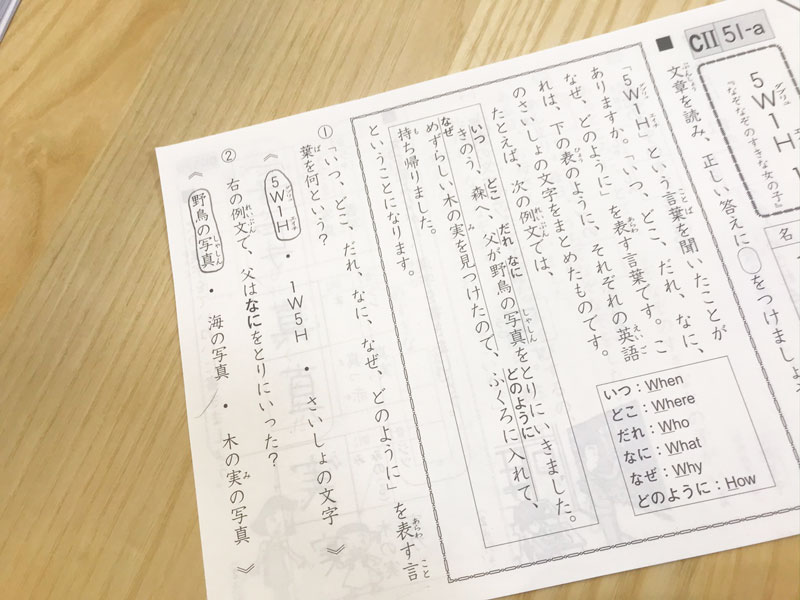 CⅡ 51-a
5W1H
『なぞなぞのすきな女の子』
名
■ 文章を読み、正しい答えに○をつけましょ
「5W1H」という言葉を聞いたことが
ありますか。「いつ、どこ、だれ、なに、
なぜ、どのように」を表す言葉です。こ
れは、下の表のように、それぞれの英語
のさいしょの文字をまとめたものです。
たとえば、次の例文では、
いつ どこ だれ なに
きのう、森へ、父が野鳥の写真をとりにいきました。
なぜ どのように
めずらしい木の実を見つけたので、ふくろに入れて、
持ち帰りました。
ということになります。
いつ：When
どこ：Where
だれ：Who
なに：What
なぜ：Why
どのように：How
① 「いつ、どこ、だれ、なに、なぜ、どのように」を表す言
葉を何という？
《 5W1H ・ 1W5H ・ さいしょの文字 》
② 右の例文で、父はなにをとりにいった？
《 野鳥の写真 ・ 海の写真 ・ 木の実の写真 》